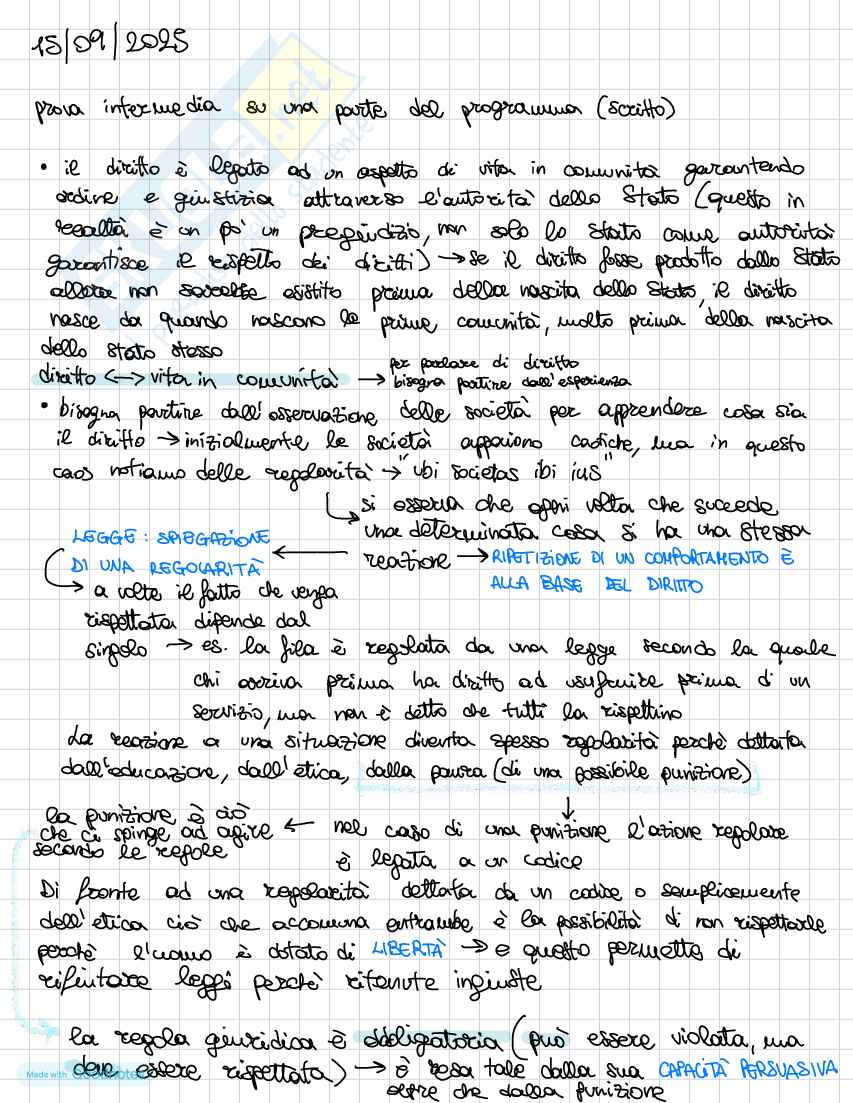 15/09/2025
prova intermedia su una parte del programma (scritto)
• il diritto è legato ad un aspetto di vita in comunità garantendo
ordine e giustizia attraverso l'autorità dello Stato (questo in
realtà è un po' un pregiudizio, non solo lo stato come autorità
garantisce il rispetto dei diritti) → se il diritto fosse prodotto dallo Stato
allora non sarebbe esistito prima della nascita dello Stato, il diritto
nasce da quando nascono le prime comunità, molto prima della nascita
dello stato stesso
diritto <-> vita in comunità → per parlare di diritto
bisogna partire dall'esperienza
• bisogna partire dall'osservazione delle società per apprendere cosa sia
il diritto → inizialmente le società appaiono caotiche, ma in questo
caos notiamo delle regolarità → "ubi societas ibi ius"
si osserva che ogni volta che succede
una determinata cosa si ha una stessa
reazione → RIPETIZIONE DI UN COMPORTAMENTO È
ALLA BASE DEL DIRITTO
LEGGE: SPIEGAZIONE
DI UNA REGOLARITÀ
→ a volte il fatto che venga
rispettata dipende dal
singolo → es. la fila è regolata da una legge secondo la quale
chi arriva prima ha diritto ad usufruire prima di un
servizio, ma non è detto che tutti la rispettino
La reazione a una situazione diventa spesso regolarità perchè dettata
dall'educazione, dall'etica, dalla paura (di una possibile punizione)
nel caso di una punizione l'azione regolare
è legata a un codice
la punizione è ciò
che ci spinge ad agire ←
secondo le regole
Di fronte ad una regolarità dettata da un codice o semplicemente
dell'etica ciò che accomuna entrambe è la possibilità di non rispettarle
perchè l'uomo è dotato di LIBERTÀ → e questo permette di
rifiutare leggi perchè ritenute ingiuste
la regola giuridica è obbligatoria (può essere violata, ma
deve essere rispettata) → è resa tale dalla sua CAPACITÀ PERSUASIVA
oltre che dalla punizione
Made with Goodnotes